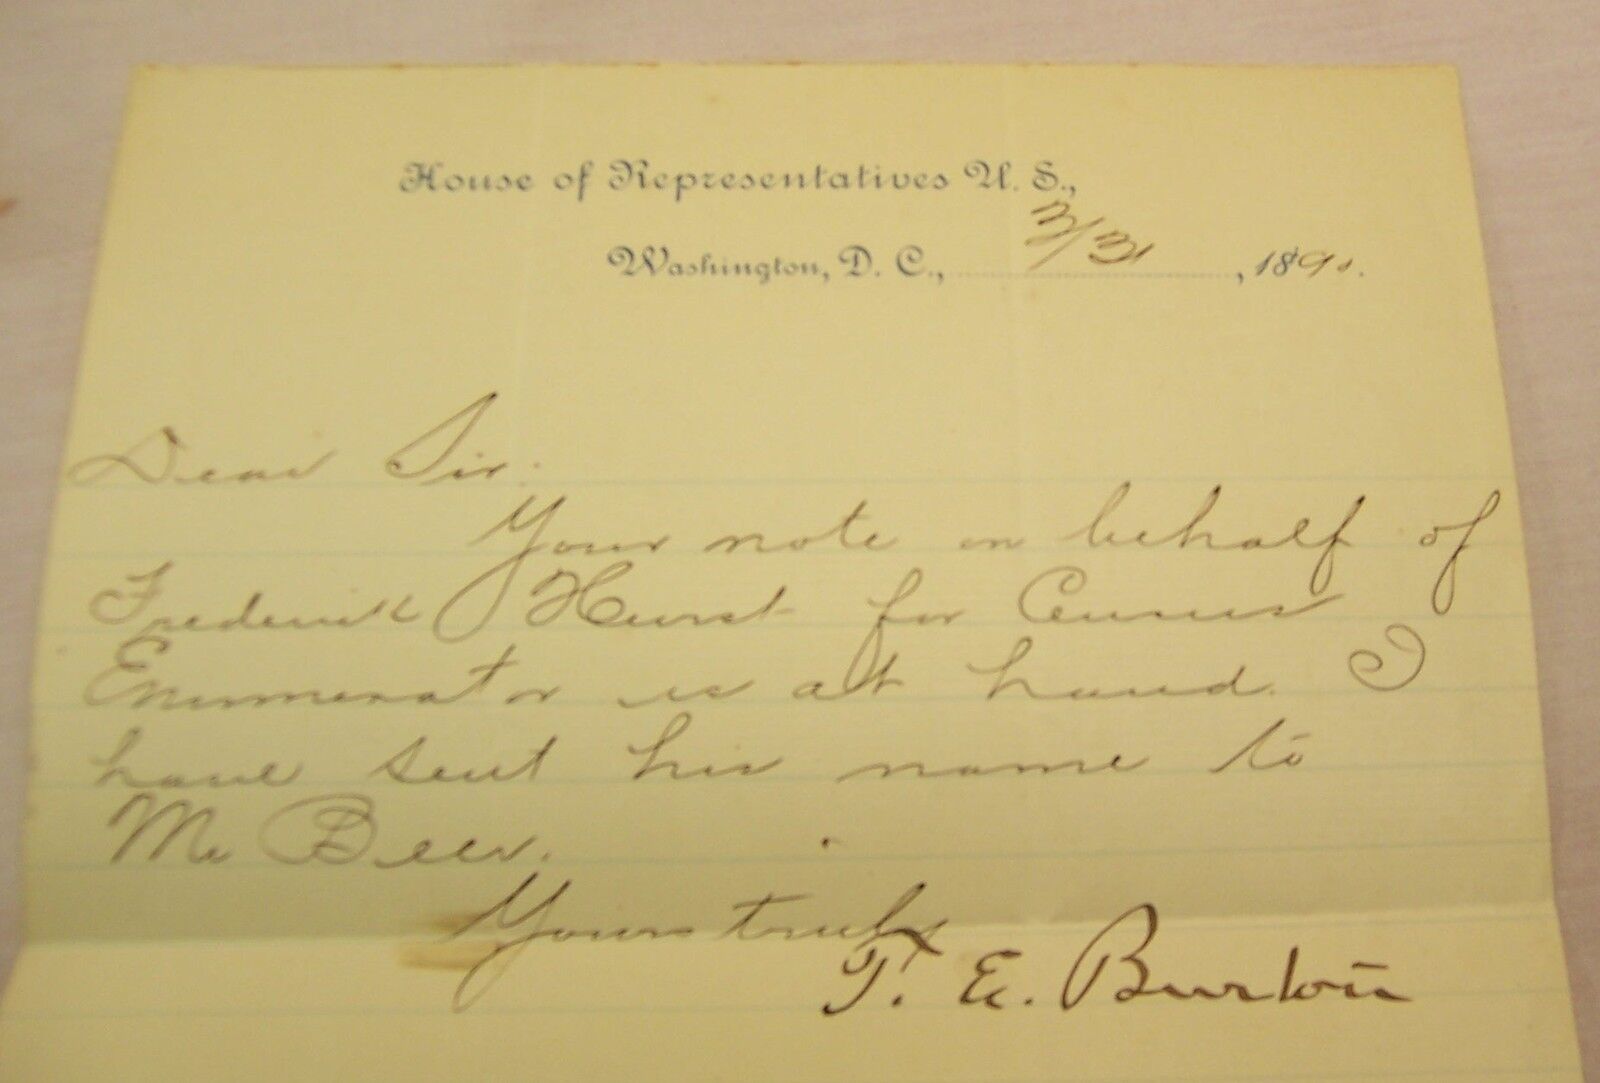 House of Representatives U. S.,
Washington, D. C., 3/31, 1890.
Dear Sir:
Your note on behalf of
Frederick Hurst for Census
Enumerator is at hand. I
have sent his name to
Mr Beer.
Yours truly
T. E. Burton